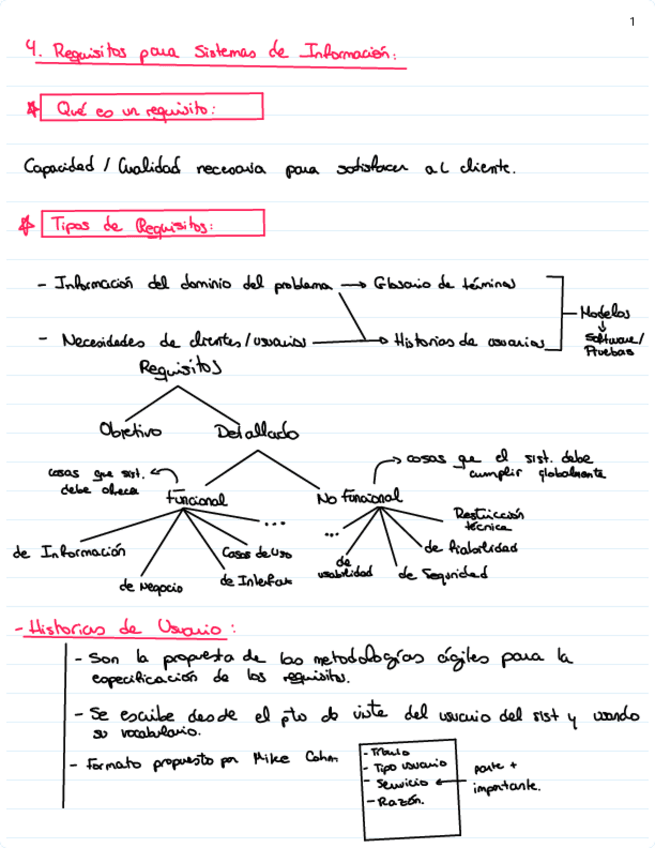 1
4. Requisitos para Sistemas de Información:
Qué es un requisito:
Capacidad / Cualidad necesaria para satisfacer al cliente.
Tipos de Requisitos:
- Información del dominio del problema → Glosario de términos
- Necesidades de clientes/usuarios → Historias de usuarios
Modelos
↓
Software/
Pruebas
Requisitos
Objetivo Detallado
cosas que sist.
debe ofrecer
cosas que el sist. debe
cumplir globalmente
Funcional No Funcional
de Información
de Negocio
de Interfaz
Casos de Uso
...
...
de
usabilidad
de Seguridad
de fiabilidad
Restricción
técnica
- Historias de Usuario:
- Son la propuesta de las metodologías ágiles para la
especificación de los requisitos.
- Se escribe desde el pto de vista del usuario del sist y usando
su vocabulario.
- Formato propuesto por Mike Cohn
- Título
- Tipo usuario
- Servicio ← parte +
importante.
- Razón.